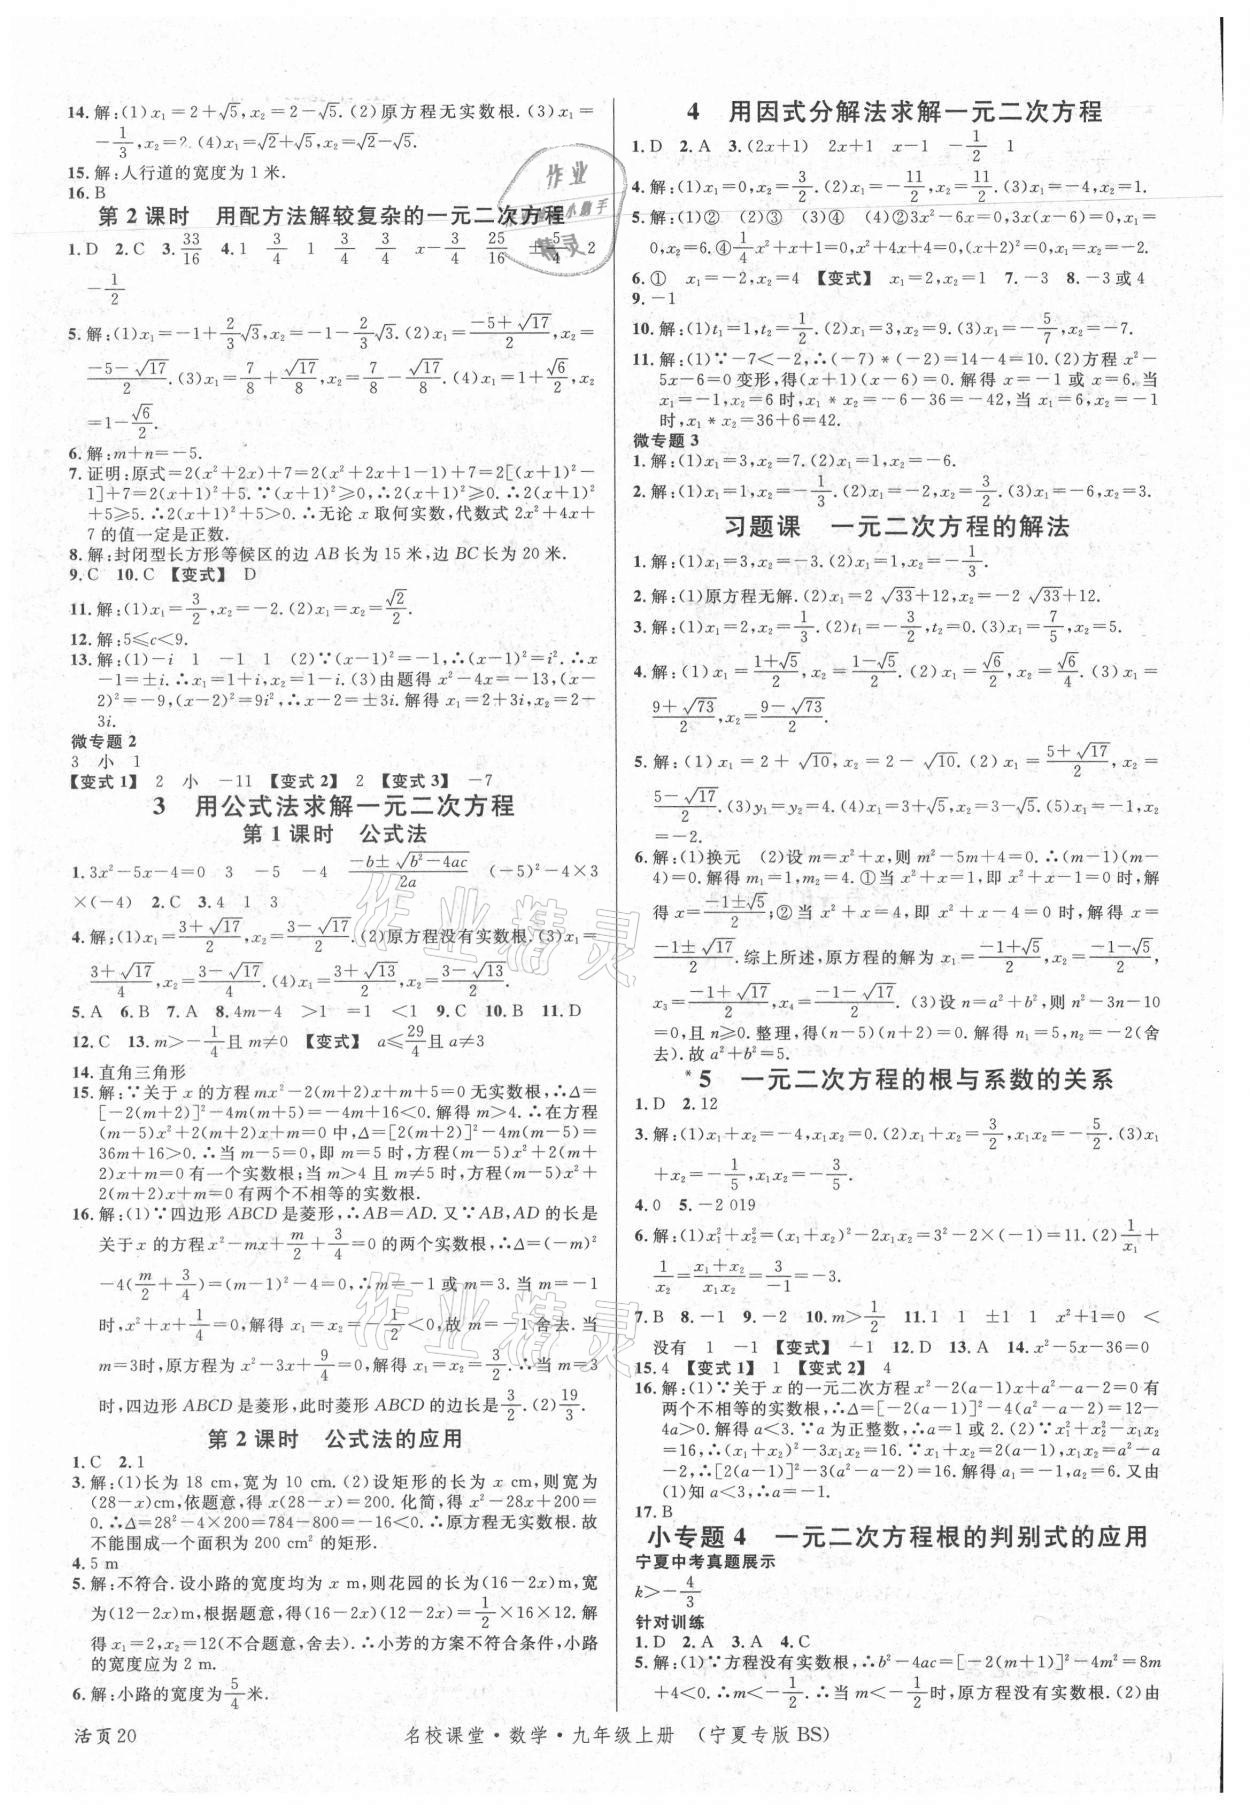 14. 解:(1)x₁=2+√5,x₂=2-√5.(2)原方程无实数根.(3)x₁=
-1/3,x₂=2.(4)x₁=√2+√5,x₂=√2-√5.
15. 解:人行道的宽度为1米.
16. B
第2课时 用配方法解较复杂的一元二次方程
1. D 2. C 3. 33/16 4. 1 3/4 1 3/4 x-3/4 25/16 ±5/4 2
-1/2
5. 解:(1)x₁=-1+2/3√3,x₂=-1-2/3√3.(2)x₁=(-5+√17)/2,x₂=
(-5-√17)/2.(3)x₁=7/8+√17/8,x₂=7/8-√17/8.(4)x₁=1+√6/2,x₂
=1-√6/2.
6. 解:m+n=-5.
7. 证明:原式=2(x²+2x)+7=2(x²+2x+1-1)+7=2[(x+1)²-
1]+7=2(x+1)²+5.∵(x+1)²≥0,∴2(x+1)²≥0.∴2(x+1)²
+5≥5.∴2(x+1)²+5>0.∴无论x取何实数,代数式2x²+4x+
7的值一定是正数.
8. 解:封闭型长方形等候区的边AB长为15米,边BC长为20米.
9. C 10. C 【变式】 D
11. 解:(1)x₁=3/2,x₂=-2.(2)x₁=x₂=√2/2.
12. 解:5≤c<9.
13. 解:(1)-i 1 -1 1 (2)∵(x-1)²=-1,∴(x-1)²=i².∴x
-1=±i.∴x₁=1+i,x₂=1-i.(3)由题得x²-4x=-13,(x-
2)²=-9,(x-2)²=9i²,∴x-2=±3i.解得x₁=2+3i,x₂=2-
3i.
微专题2
3 小 1
【变式1】 2 小 -11 【变式2】 2 【变式3】 -7
3 用公式法求解一元二次方程
第1课时 公式法
1. 3x²-5x-4=0 3 -5 -4 (-b±√(b²-4ac))/2a (-5)²-4×3
×(-4) 2. C 3. 4 1 3
4. 解:(1)x₁=(3+√17)/2,x₂=(3-√17)/2.(2)原方程没有实数根.(3)x₁=
(3+√17)/4,x₂=(3-√17)/4.(4)x₁=(3+√13)/2,x₂=(3-√13)/2.
5. A 6. B 7. A 8. 4m-4 >1 =1 <1 9. C 10. B 11. D
12. C 13. m>-1/4且m≠0 【变式】 a≤29/4且a≠3
14. 直角三角形
15. 解:∵关于x的方程mx²-2(m+2)x+m+5=0无实数根,∴Δ=
[-2(m+2)]²-4m(m+5)=-4m+16<0.解得m>4.∴在方程
(m-5)x²+2(m+2)x+m=0中,Δ=[2(m+2)]²-4m(m-5)=
36m+16>0.∴当m-5=0,即m=5时,方程(m-5)x²+2(m+
2)x+m=0有一个实数根;当m>4且m≠5时,方程(m-5)x²+
2(m+2)x+m=0有两个不相等的实数根.
16. 解:(1)∵四边形ABCD是菱形,∴AB=AD.又∵AB,AD的长是
关于x的方程x²-mx+m/2+3/4=0的两个实数根,∴Δ=(-m)²
-4(m/2+3/4)=(m-1)²-4=0,∴m=-1或m=3.当m=-1
时,x²+x+1/4=0,解得x₁=x₂=-1/2<0,故m=-1舍去.当
m=3时,原方程为x²-3x+9/4=0,解得x₁=x₂=3/2.∴当m=3
时,四边形ABCD是菱形,此时菱形ABCD的边长是3/2.(2)19/3.
第2课时 公式法的应用
1. C 2. 1
3. 解:(1)长为18 cm,宽为10 cm.(2)设矩形的长为x cm,则宽为
(28-x)cm,依题意,得x(28-x)=200.化简,得x²-28x+200=
0.∴Δ=28²-4×200=784-800=-16<0.∴原方程无实数根.故
不能围成一个面积为200 cm²的矩形.
4. 5 m
5. 解:不符合.设小路的宽度均为x m,则花园的长为(16-2x)m,宽
为(12-2x)m,根据题意,得(16-2x)(12-2x)=1/2×16×12.解
得x₁=2,x₂=12(不合题意,舍去).∴小芳的方案不符合条件,小路
的宽度应为2 m.
6. 解:小路的宽度为5/4米.
4 用因式分解法求解一元二次方程
1. D 2. A 3. (2x+1) 2x+1 x-1 -1/2 1
4. 解:(1)x₁=0,x₂=3/2.(2)x₁=-11/2,x₂=11/2.(3)x₁=-4,x₂=1.
5. 解:(1)①② (2)③ (3)④ (4)②3x²-6x=0,3x(x-6)=0,x₁=
0,x₂=6.④1/4x²+x+1=0,(1/2x+1)²=0,x₁=x₂=-2.
6. ① x₁=-2,x₂=4 【变式】 x₁=2,x₂=1 7. -3 8. -3或4
9. -1
10. 解:(1)t₁=1,t₂=1/2.(2)x₁=3,x₂=9.(3)x₁=-5/7,x₂=-7.
11. 解:(1)∵-7<-2,∴(-7)*(-2)=14-4=10.(2)方程x²-
5x-6=0变形,得(x+1)(x-6)=0.解得x=-1或x=6.当
x₁=-1,x₂=6时,x₁*x₂=-6-36=-42,当x₁=6,x₂=-1
时,x₁*x₂=36+6=42.
微专题3
1. 解:(1)x₁=3,x₂=7.(2)x₁=1,x₂=-6.
2. 解:(1)x₁=1,x₂=-1/3.(2)x₁=-2,x₂=3/2.(3)x₁=-6,x₂=3.
习题课 一元二次方程的解法
1. 解:(1)x₁=3,x₂=-3.(2)x₁=1,x₂=-1/3.
2. 解:(1)原方程无解.(2)x₁=2√33+12,x₂=-2√33+12.
3. 解:(1)x₁=2,x₂=1/3.(2)t₁=-3/2,t₂=0.(3)x₁=7/5,x₂=5.
4. 解:(1)x₁=(1+√5)/2,x₂=(1-√5)/2.(2)x₁=√6/2,x₂=√6/4.(3)x₁=
(9+√73)/2,x₂=(9-√73)/2.
5. 解:(1)x₁=2+√10,x₂=2-√10.(2)x₁=(5+√17)/2,x₂=
(5-√17)/2.(3)y₁=y₂=4.(4)x₁=3+√5,x₂=3-√5.(5)x₁=-1,x₂
=-2.
6. 解:(1)换元 (2)设m=x²+x,则m²-5m+4=0.∴(m-1)(m-
4)=0.解得m₁=1,m₂=4.①当x²+x=1,即x²+x-1=0时,解
得x=(-1±√5)/2;②当x²+x=4,即x²+x-4=0时,解得x=
(-1±√17)/2.综上所述,原方程的解为x₁=(-1+√5)/2,x₂=(-1-√5)/2,
x₃=(-1+√17)/2,x₄=(-1-√17)/2.(3)设n=a²+b²,则n²-3n-10
=0,且n≥0.整理,得(n-5)(n+2)=0.解得n₁=5,n₂=-2(舍
去).故a²+b²=5.
*5 一元二次方程的根与系数的关系
1. D 2. 12
3. 解:(1)x₁+x₂=-4,x₁x₂=0.(2)x₁+x₂=3/2,x₁x₂=-5/2.(3)x₁
+x₂=-1/5,x₁x₂=-3/5.
4. 0 5. -2 019
6. 解:(1)x₁²+x₂²=(x₁+x₂)²-2x₁x₂=3²-2×(-1)=11.(2)1/x₁+
1/x₂=(x₁+x₂)/x₁x₂=3/-1=-3.
7. B 8. -1 9. -2 10. m>1/2 11. 1 1 ±1 1 x²+1=0 <
没有 1 -1 【变式】 -1 12. D 13. A 14. x²-5x-36=0
15. 4 【变式1】 1 【变式2】 4
16. 解:(1)∵关于x的一元二次方程x²-2(a-1)x+a²-a-2=0有
两个不相等的实数根,∴Δ=[-2(a-1)]²-4(a²-a-2)=12-
4a>0.解得a<3.∵a为正整数,∴a=1或2.(2)∵x₁²+x₂²-x₁x₂
=16,∴(x₁+x₂)²-3x₁x₂=16.∵x₁+x₂=2(a-1),x₁x₂=a²-a
-2,∴[2(a-1)]²-3(a²-a-2)=16.解得a₁=-1,a₂=6.又由
(1)知a<3,∴a=-1.
17. B
小专题4 一元二次方程根的判别式的应用
宁夏中考真题展示
k>-4/3
针对训练
1. D 2. A 3. A 4. C
5. 解:(1)∵方程没有实数根,∴b²-4ac=[-2(m+1)]²-4m²=8m
+4<0.∴m<-1/2.∴当m<-1/2时,原方程没有实数根.(2)由
活页20 名校课堂·数学·九年级上册 (宁夏专版 BS)